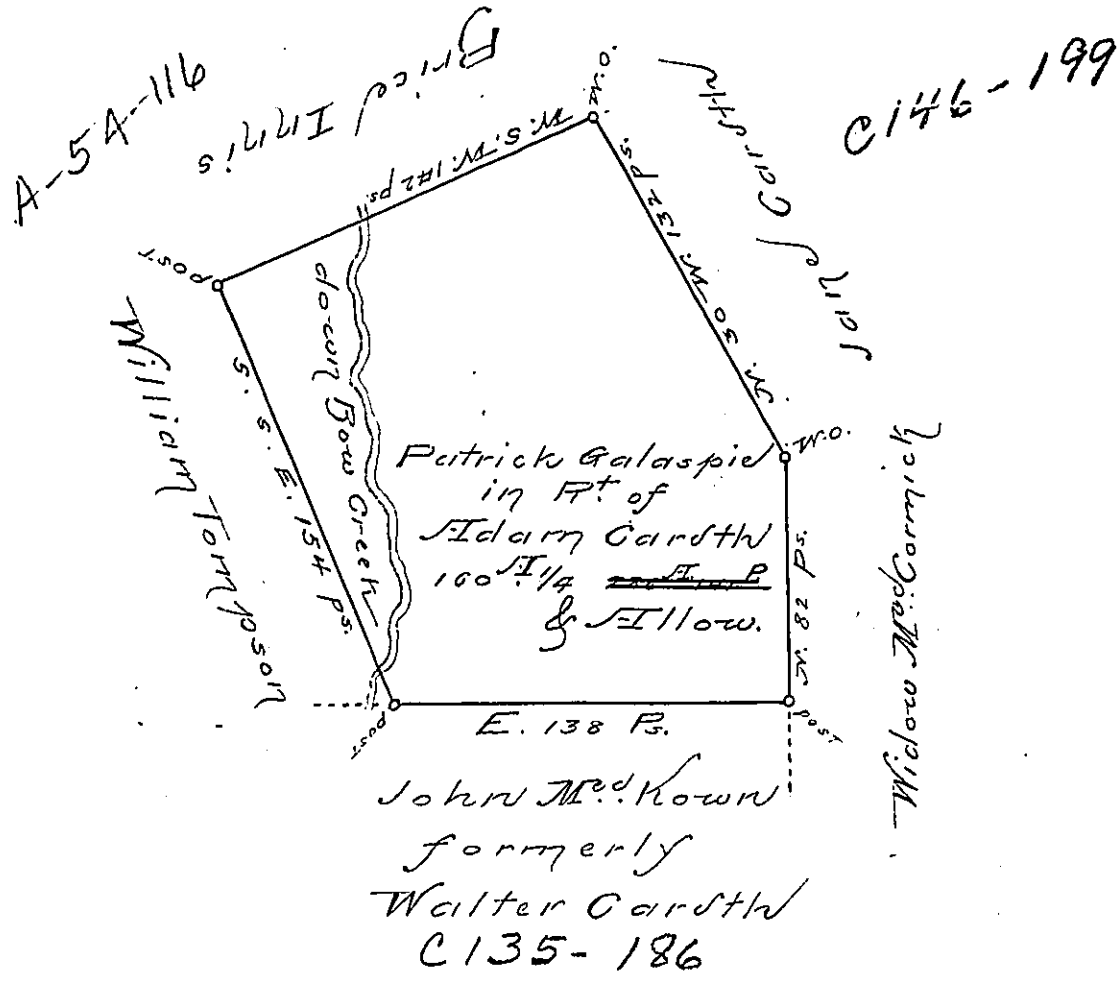 A-5A-116
Brice Innis
C146-199
W.O.
W.S.W. 142 ps.
N. 30 W. 132 Ps.
Jane Carsth
post
William Tompson
S. S. E. 154 Ps.
down Bow Creek
Patrick Galaspie
in Rt. of
Adam Carsth
160 A. 1/4
& Allow.
W.O.
N. 82 Ps.
Widow McCormick
post
E. 138 Ps.
post
John McKown
formerly
Walter Carsth
C135-186